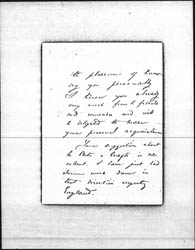 the pleasure of know
ing you personally
I know you already
very much from friends
and comrades and will
be delighted to make
your personal acquaintance
Your suggestion about
the is
excellent. I have just had
some done in
that direction regarding
England.